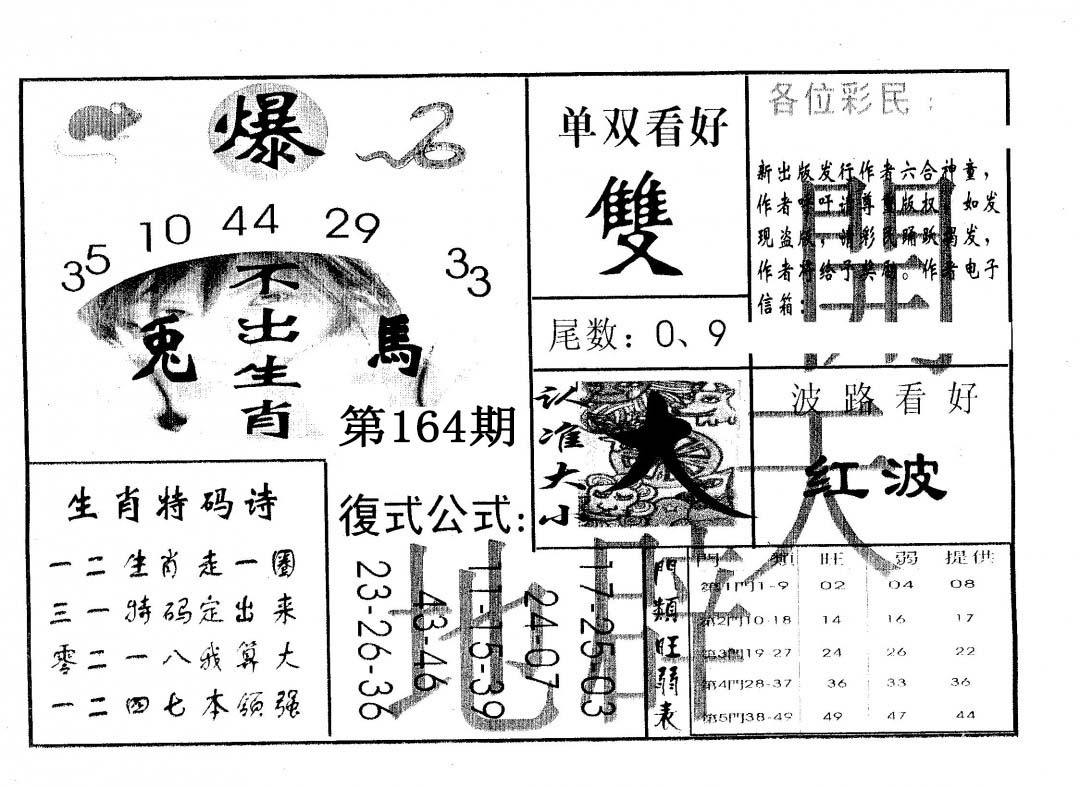 爆
35 10 44 29 33
不出生肖
兔 馬
第164期
单双看好
雙
尾数：0、9
各位彩民：
新出版发行作者六合神童，
作者呼吁请尊重版权。如发
现盗版，请彩民踊跃揭发，
作者将给予奖励。作者电子
信箱：
認准大小
大
波路看好
红波
生肖特码诗
一二生肖走一圈
三一特码定出来
零二一八我算大
一二四七本领强
復式公式：
23-26-36
43-46
11-15-39
24-07
17-25-03
門類旺弱表
門 類 旺 弱 提供
第1門1-9 02 04 08
第2門10-18 14 16 17
第3門19-27 24 26 22
第4門28-37 36 33 36
第5門38-49 49 47 44